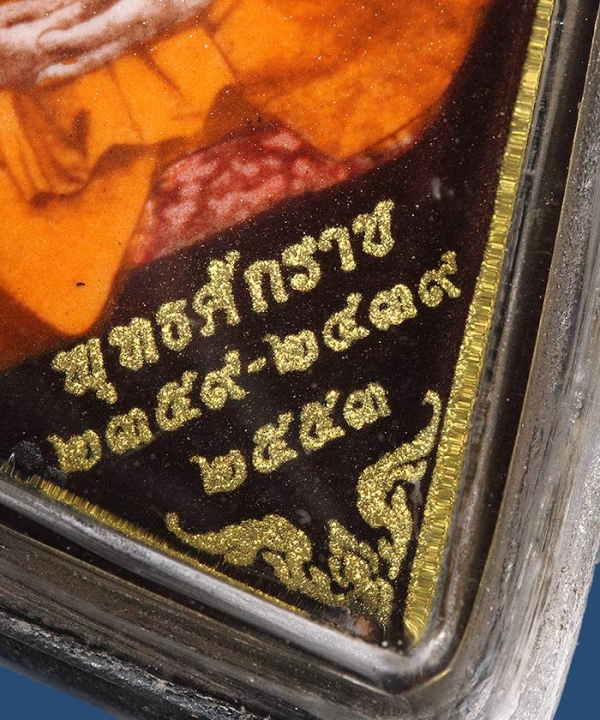 พุทธศักราช
๒๓๕๙-๒๔๓๙
๒๕๕๓